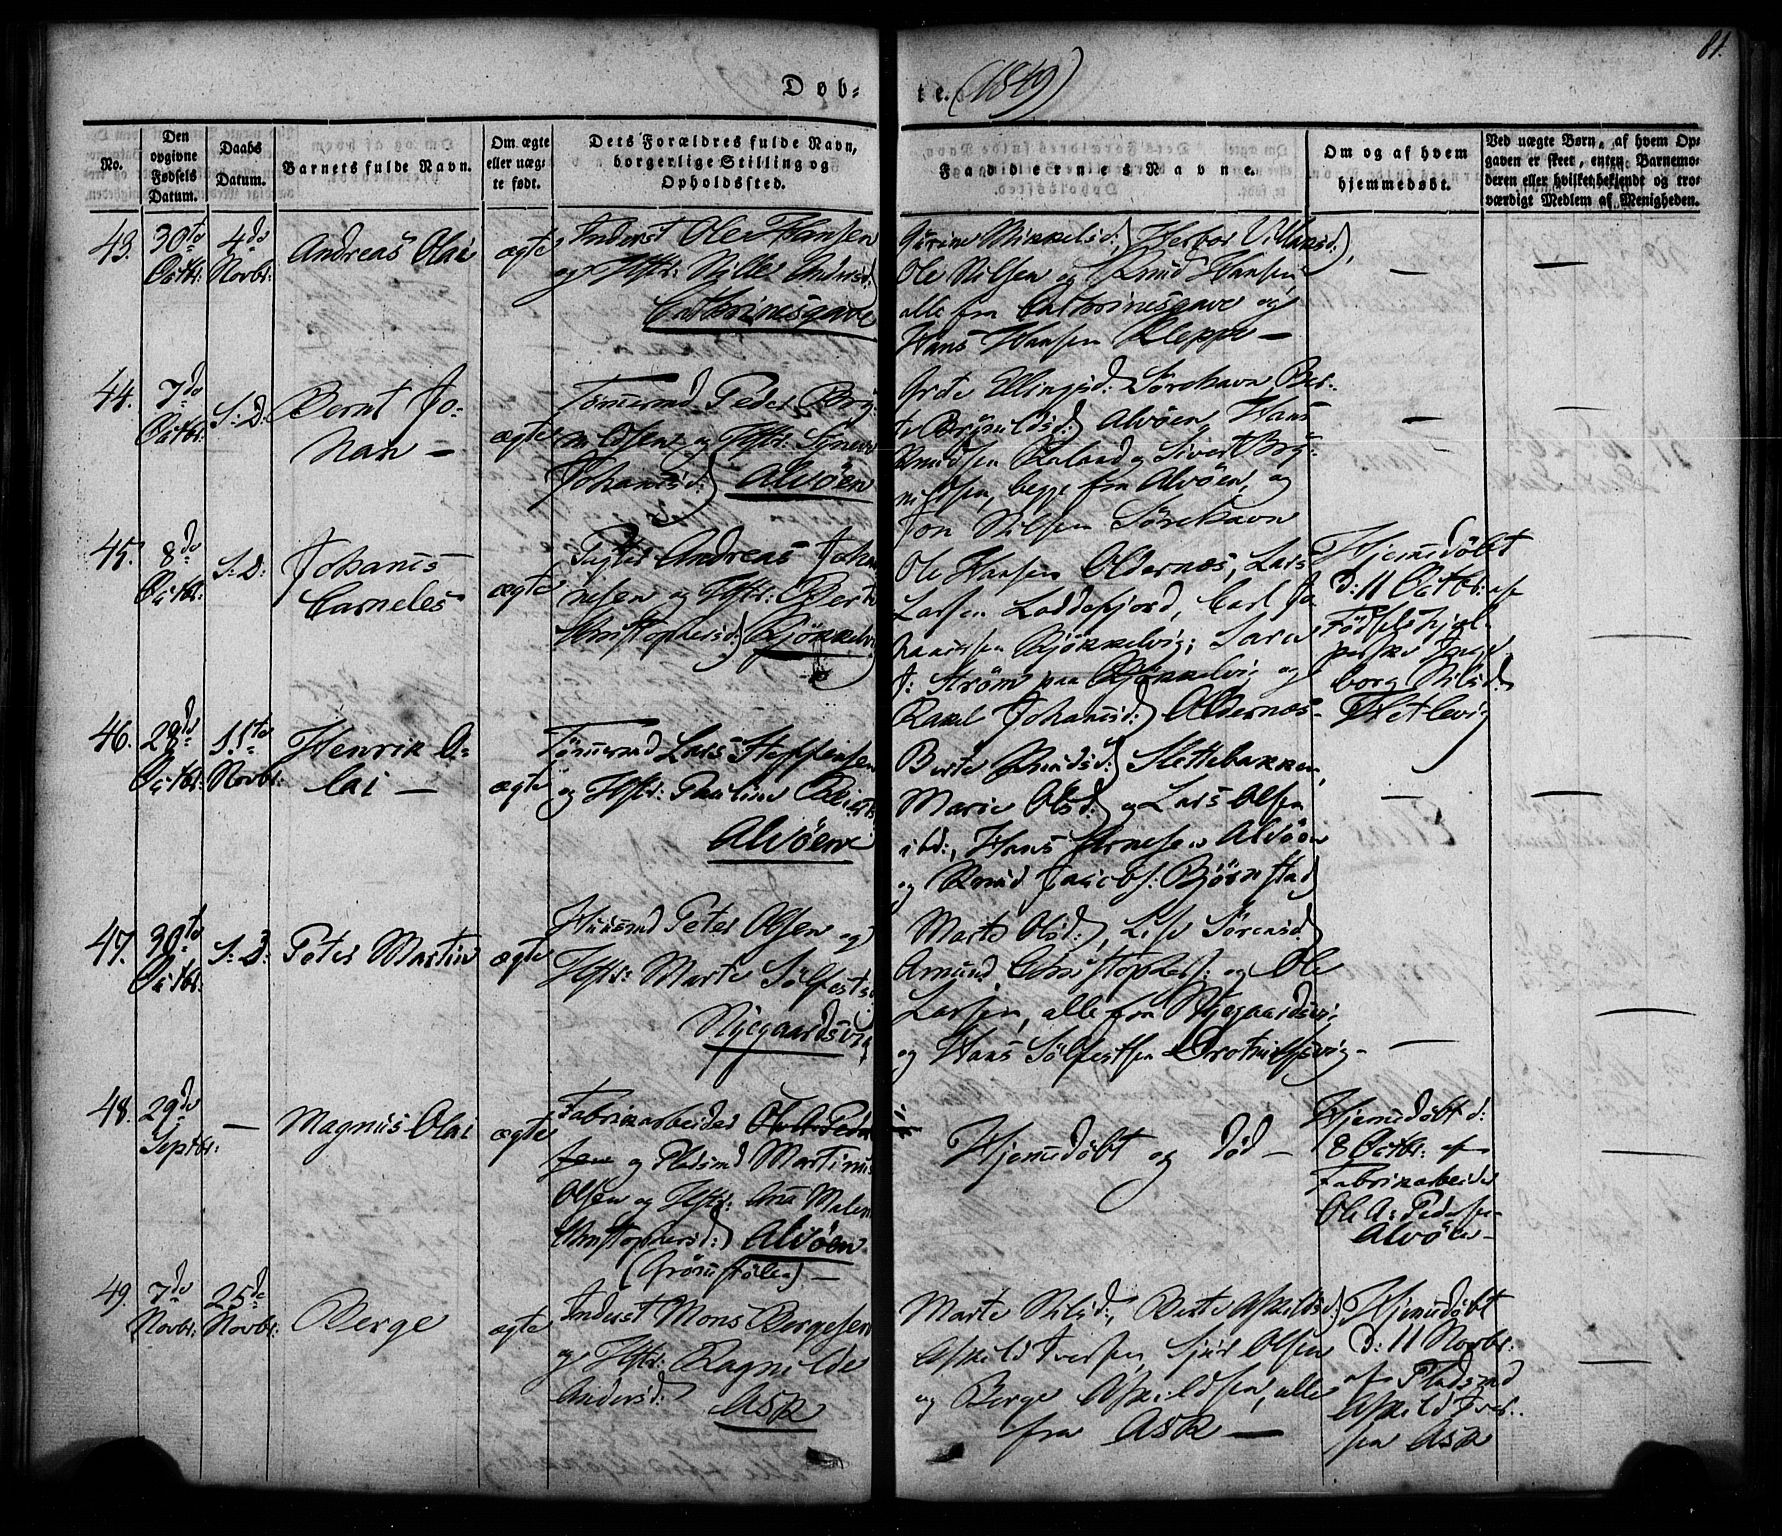 Døb-
te. (1849)
81.
No.
Den opgivne Fødsels Datum.
Daabs Datum.
Barnets fulde Navn.
Om ægte eller uægte født.
Dets Forældres fulde Navn, borgerlige Stilling og Opholdssted.
Faddernes Navne.
Om og af hvem hjemmedøbt.
Ved uægte Børn, af hvem Opgaven er skeet, enten Barnemoderen eller hvilket bekjendt og troværdigt Medlem af Menigheden.
43.
30te Octbr:
4de Novbr:
Andreas Olai
ægte
Inderst Ole Hansen
og Hstr: Nille Andersd:
Cathrinesgave
Mikkelsd:) Herbor Villumsd:),
Ole Nilsen og Knud Hansen
alle fra Cathrinesgave og
Hans Hansen Kleppe —
—
—
44.
7de Octbr:
S: D:
Bernt Jo-
nan —
ægte
Tømmermd Peder Bry-
nildsen og Hstr: Synneve
Johannesd:) Alvøen
Ellingsd: Sørehavn Ber-
te Brynildsd:) Alvøen, Hans
Knudsen og Sivert Bry-
nildsen, begge fra Alvøen, og
Jon Nilsen Sørehavn
—
—
45.
8de Octbr:
S: D:
Johannes
Carneles
ægte
Andreas Johan-
nesen og Hstr: Berte
Christophersd:) Bjøkkelvig
Ole Hansen Oldernæs, Lars
Larsen Loddefjord, Carl Jo-
hannesen Bjøkkelvig; Sara
J: Strøm paa Bjøkkelvig og
Rakel Johannesd:) Oldernæs-
Hjemmedøbt
d: 11 Octbr: af
Fødselshjæl-
perske Inge-
borg Nilsd:
Hetlevig
—
46.
28de Octbr:
11te Novbr:
Henrik O-
lai —
ægte
Tømmermd Lars Steffensen
og Hstr: Pauline
Alvøen
Berte Knudsd:) Slettebakken,
Marie Olsd:) og Lars Olsen
ibd:, Hans Arnesen Alvøen
og Knud Jacobs: Bjørnstad
—
—
47.
30te Octbr:
S: D:
Peter Martin
ægte
Huusmd Peter Olsen og
Hstr: Marte Sølfestsd:)
Nygaardsvig
Marte Olsd:), Lise Sørensd:)
Amund Christophers: og Ole
Larsen, alle fra Nygaardsvig,
og Hans Sølfestsen Drotningsvig-
—
—
48.
29de Septbr:
—
Magnus Olai
ægte
Fabrikarbeider Ole A. Peder-
sen og Pladsmd Martinus
Olsen og Hstr: Ana Malene
Christophersd:) Alvøen
(Grønstølen) —
Hjemmedøbt og død —
Hjemmedøbt d:
8 Octbr: af
Fabrikarbeider
Ole A: Pedersen
Alvøen —
49.
7de Novbr:
25de Novbr:
Berge
ægte
Inderst Mons Bergesen
og Hstr: Ragnilde
Andersd:
Ask
Marte Nilsd:, Berte Askildsd:)
Askild Iversen, Sjur Olsen
og Berge Askildsen, alle
fra Ask —
Hjemmedøbt
d: 11 Novbr:
af Pladsmd
Askild Iver-
sen Ask
—